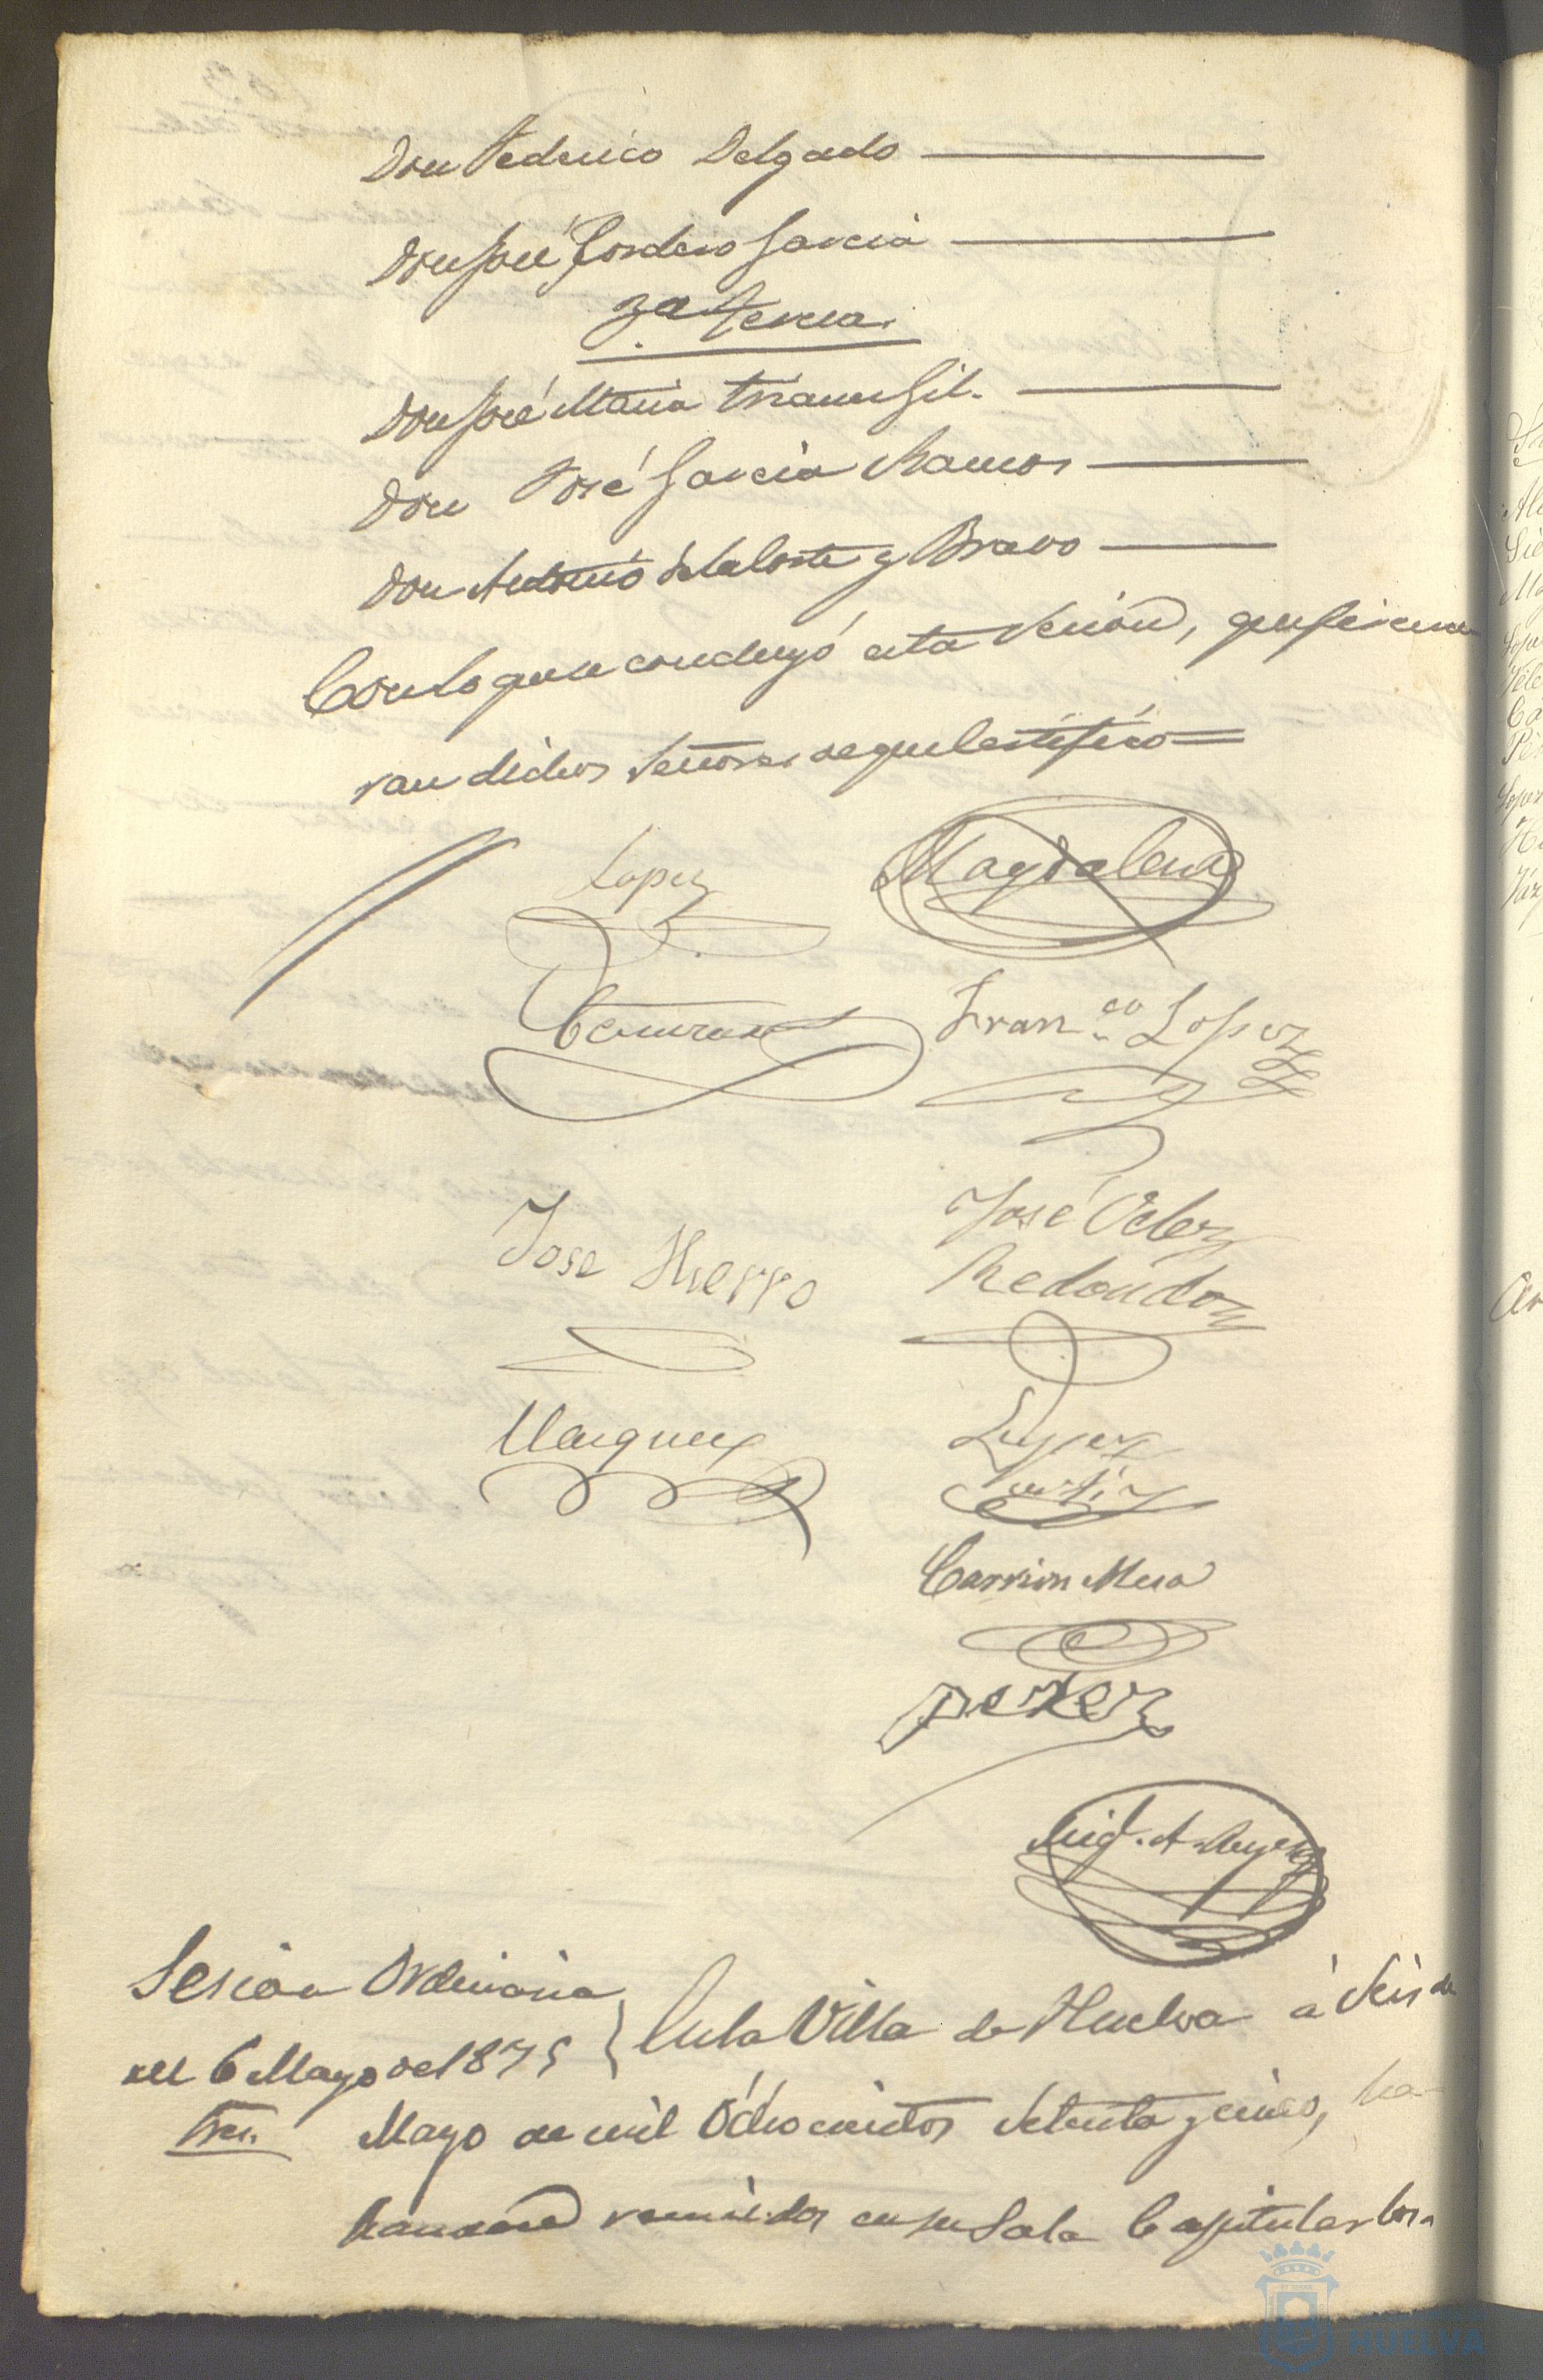 Don Federico Delgado
Don José Cordero Garcia
3ª Tercera.
Don José Maria Trianes Gil.
Don José Garcia Ramos
Don Antonio de la Corte y Bravo
Con lo que se concluyó esta Sesion, que firma
ran dichos Señores de que Certifico=
Lopez Magdalena
Franco Lopez
Jose Hierro José Velez
Redondo
Marquez Lopez
Ortiz
Carrion Mesa
perez
Sesion Ordinaria
del 6 Mayo de 1875
En la Villa de Huelva á Seis de
Mayo de mil Ochocientos Setenta y cinco, ha
reunidos en su Sala Capitular los
HUELVA